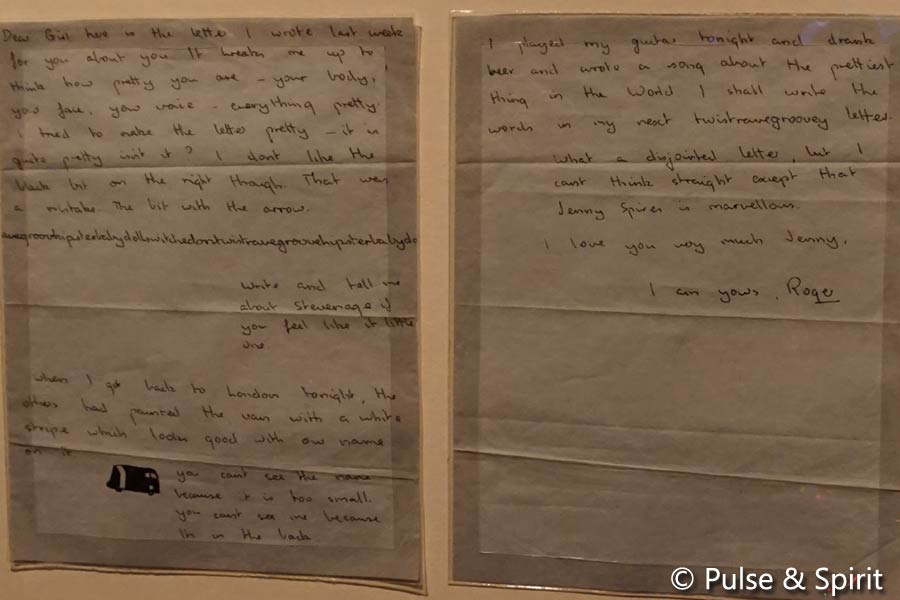 Dear Girl here is the letter I wrote last week
for you about you It breaks me up to
think how pretty you are - your body,
your face, your voice - everything pretty.
I tried to make the letter pretty - it is
quite pretty isn't it? I dont like the
black bit on the right though. That was
a mistake. The bit with the arrow.
avegroovhipsterbabydollswitchedontwistravegroovehipsterbabydo
write and tell me
about Stevenage if
you feel like it little
one
When I got back to London tonight, the
others had painted the van with a white
stripe which looks good with our name
on it
you cant see the name
because it is too small.
you cant see me because
Im in the back
I played my guitar tonight and drank
beer and wrote a song about the prettiest
thing in the World I shall write the
words in my next twistravegroovey letter.
What a disjointed letter, but I
cant think straight except that
Jenny Spires is marvellous.
I love you very much Jenny.
I am yours, Roger
© Pulse & Spirit